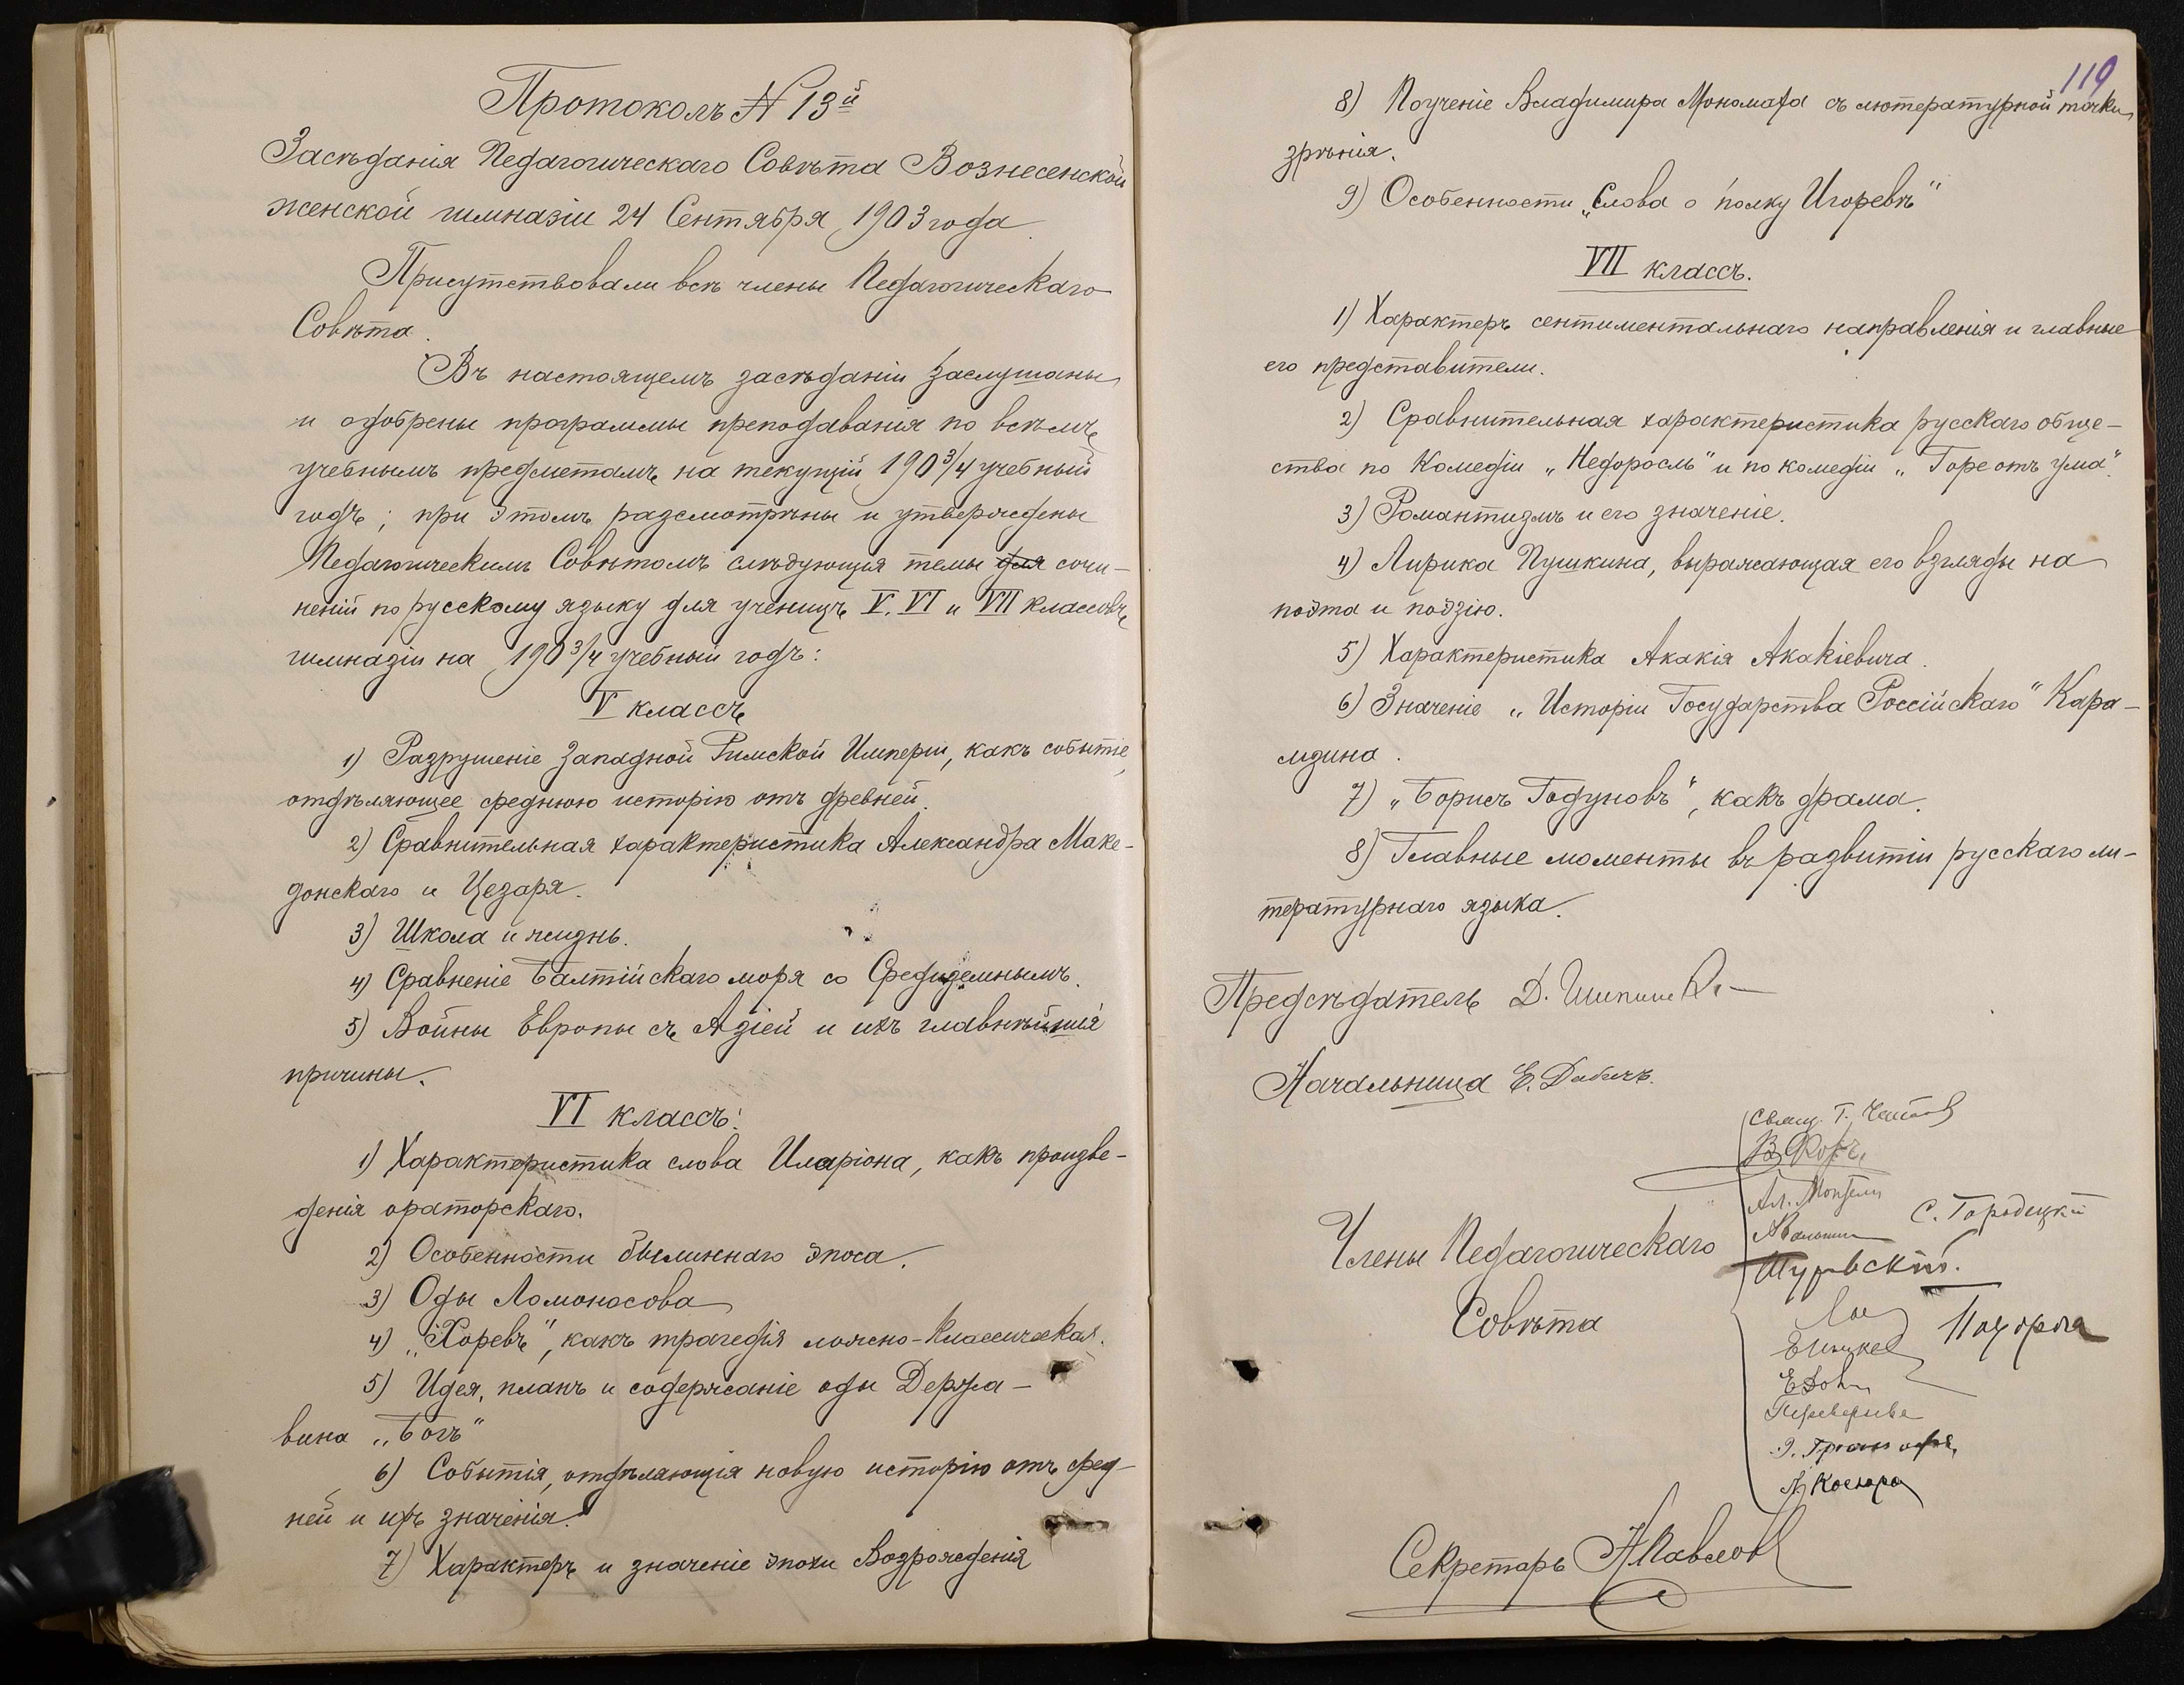 Протоколъ № 13й
Засѣданія Педагогическаго Совѣта Вознесенской
женской гимназіи 24 Сентября 1903 года.
Присутствовали всѣ члены Педагогическаго
Совѣта.
Въ настоящемъ засѣданіи заслушаны
и одобрены программы преподаванія по всѣмъ
учебнымъ предметамъ на текущій 1903/4 учебный
годъ; при этомъ разсмотрѣны и утверждены
Педагогическимъ Совѣтомъ слѣдующія темы для сочи-
неній по русскому языку для ученицъ V, VI и VII классовъ
гимназіи на 1903/4 учебный годъ:
V классъ
1) Разрушеніе Западной Римской Имперіи, какъ событіе,
отдѣляющее среднюю исторію отъ древней.
2) Сравнительная характеристика Александра Маке-
донскаго и Цезаря.
3) Школа и жизнь.
4) Сравненіе Балтійскаго моря со Средиземнымъ.
5) Войны Европы съ Азіей и ихъ главнѣйшія
причины.
VI классъ:
1) Характеристика слова Иларіона, какъ произве-
денія ораторскаго.
2) Особенности былиннаго эпоса.
3) Оды Ломоносова
4) „Хоревъ“, какъ трагедія ложно-классическая.
5) Идея, планъ и содержаніе оды Держа-
вина „Богъ“
6) Событія, отдѣляющія новую исторію отъ сред-
ней и ихъ значенія.
7) Характеръ и значеніе эпохи Возрожденія
119
8) Поученіе Владимира Мономаха съ литературной точки
зрѣнія.
9) Особенности „Слова о полку Игоревѣ“
VII классъ.
1) Характеръ сентиментальнаго направленія и главные
его представители.
2) Сравнительная характеристика русскаго обще-
ства по комедіи „Недоросль“ и по комедіи „Горе отъ ума“.
3) Романтизмъ и его значеніе.
4) Лирика Пушкина, выражающая его взгляды на
поэта и поэзію.
5) Характеристика Акакія Акакіевича.
6) Значеніе „Исторіи Государства Россійскаго“ Кара-
мзина.
7) „Борисъ Годуновъ“, какъ драма.
8) Главные моменты въ развитіи русскаго ли-
тературнаго языка.
Предсѣдатель Д.
Начальница Е.
Свящ. Т.
С. Городецкій
Члены Педагогическаго
Совѣта
Секретарь Н. Павлов